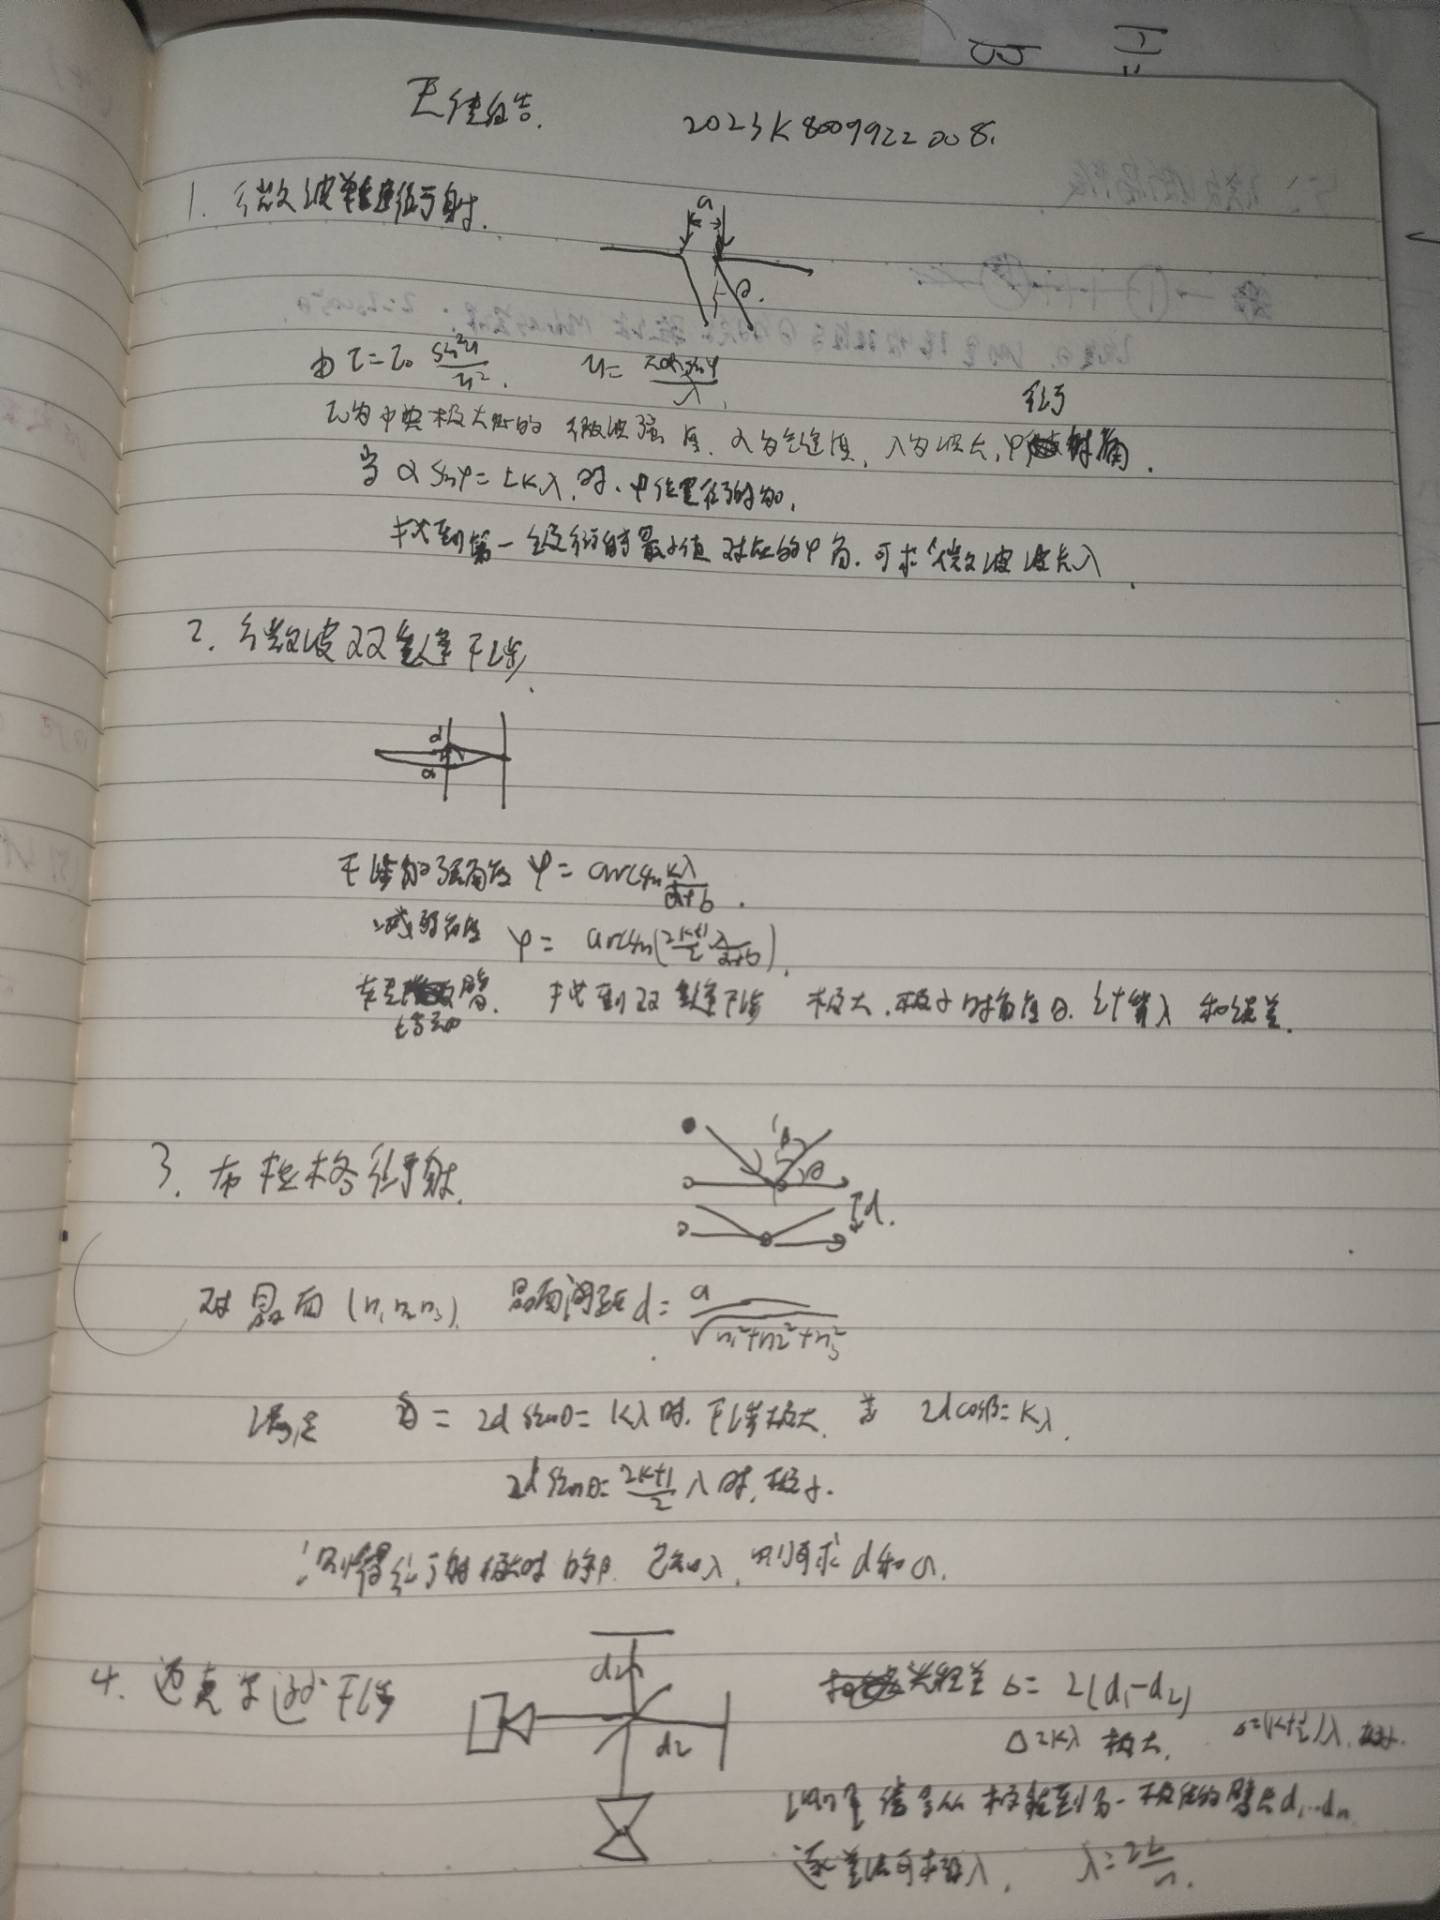 2023K8009922008.
1. 微波单缝衍射.
a
θ.
由 I=I₀ sin²u/u². u= παsinφ/λ.
衍
I₀为中央极大处的微波强度. α为缝宽, λ为波长, φ 射角.
当 αsinφ=±Kλ 时. φ位置衍射为0.
找到第一级衍射最小值对应的φ角. 可求微波波长λ.
2. 微波双缝干涉.
d
a
干涉加强角度 φ= arcsin Kλ/a+b.
减弱角度 φ= arcsin(2K+1/2 λ/a+b).
臂. 找到双缝干涉 极大、极小时角度θ. 计算λ 和误差.
转动
3. 布拉格衍射.
β
θ
d.
对晶面 (n₁n₂n₃). 晶面间距d= a/√n₁²+n₂²+n₃²
满足 = 2d sinθ= Kλ时. 干涉极大. 2dcosβ=Kλ.
2d sinθ= 2K+1/2 λ时, 极小.
测得衍射极大时 的β. 已知λ, 则可求d和a.
4. 迈克尔逊干涉
d₁
d₂
光程差 δ= 2(d₁-d₂)
Δ=Kλ 极大. Δ=(K+½)λ. 极小.
测量信号从极 到另一极 的臂长d₁…dₙ
逐差法可求得λ. λ=2L/n.